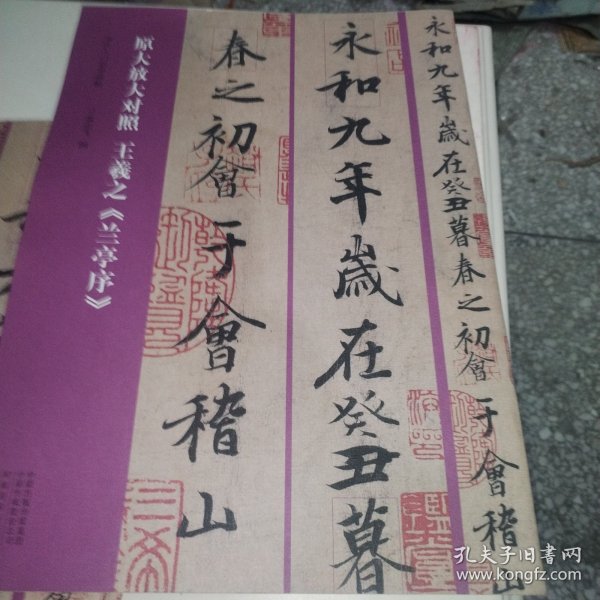 永和九年歲在癸丑暮春之初會于會稽山
永和九年歲在癸丑暮
春之初會于會稽山
原大放大对照 王羲之《兰亭序》
孔夫子旧书网
www.kongfz.com